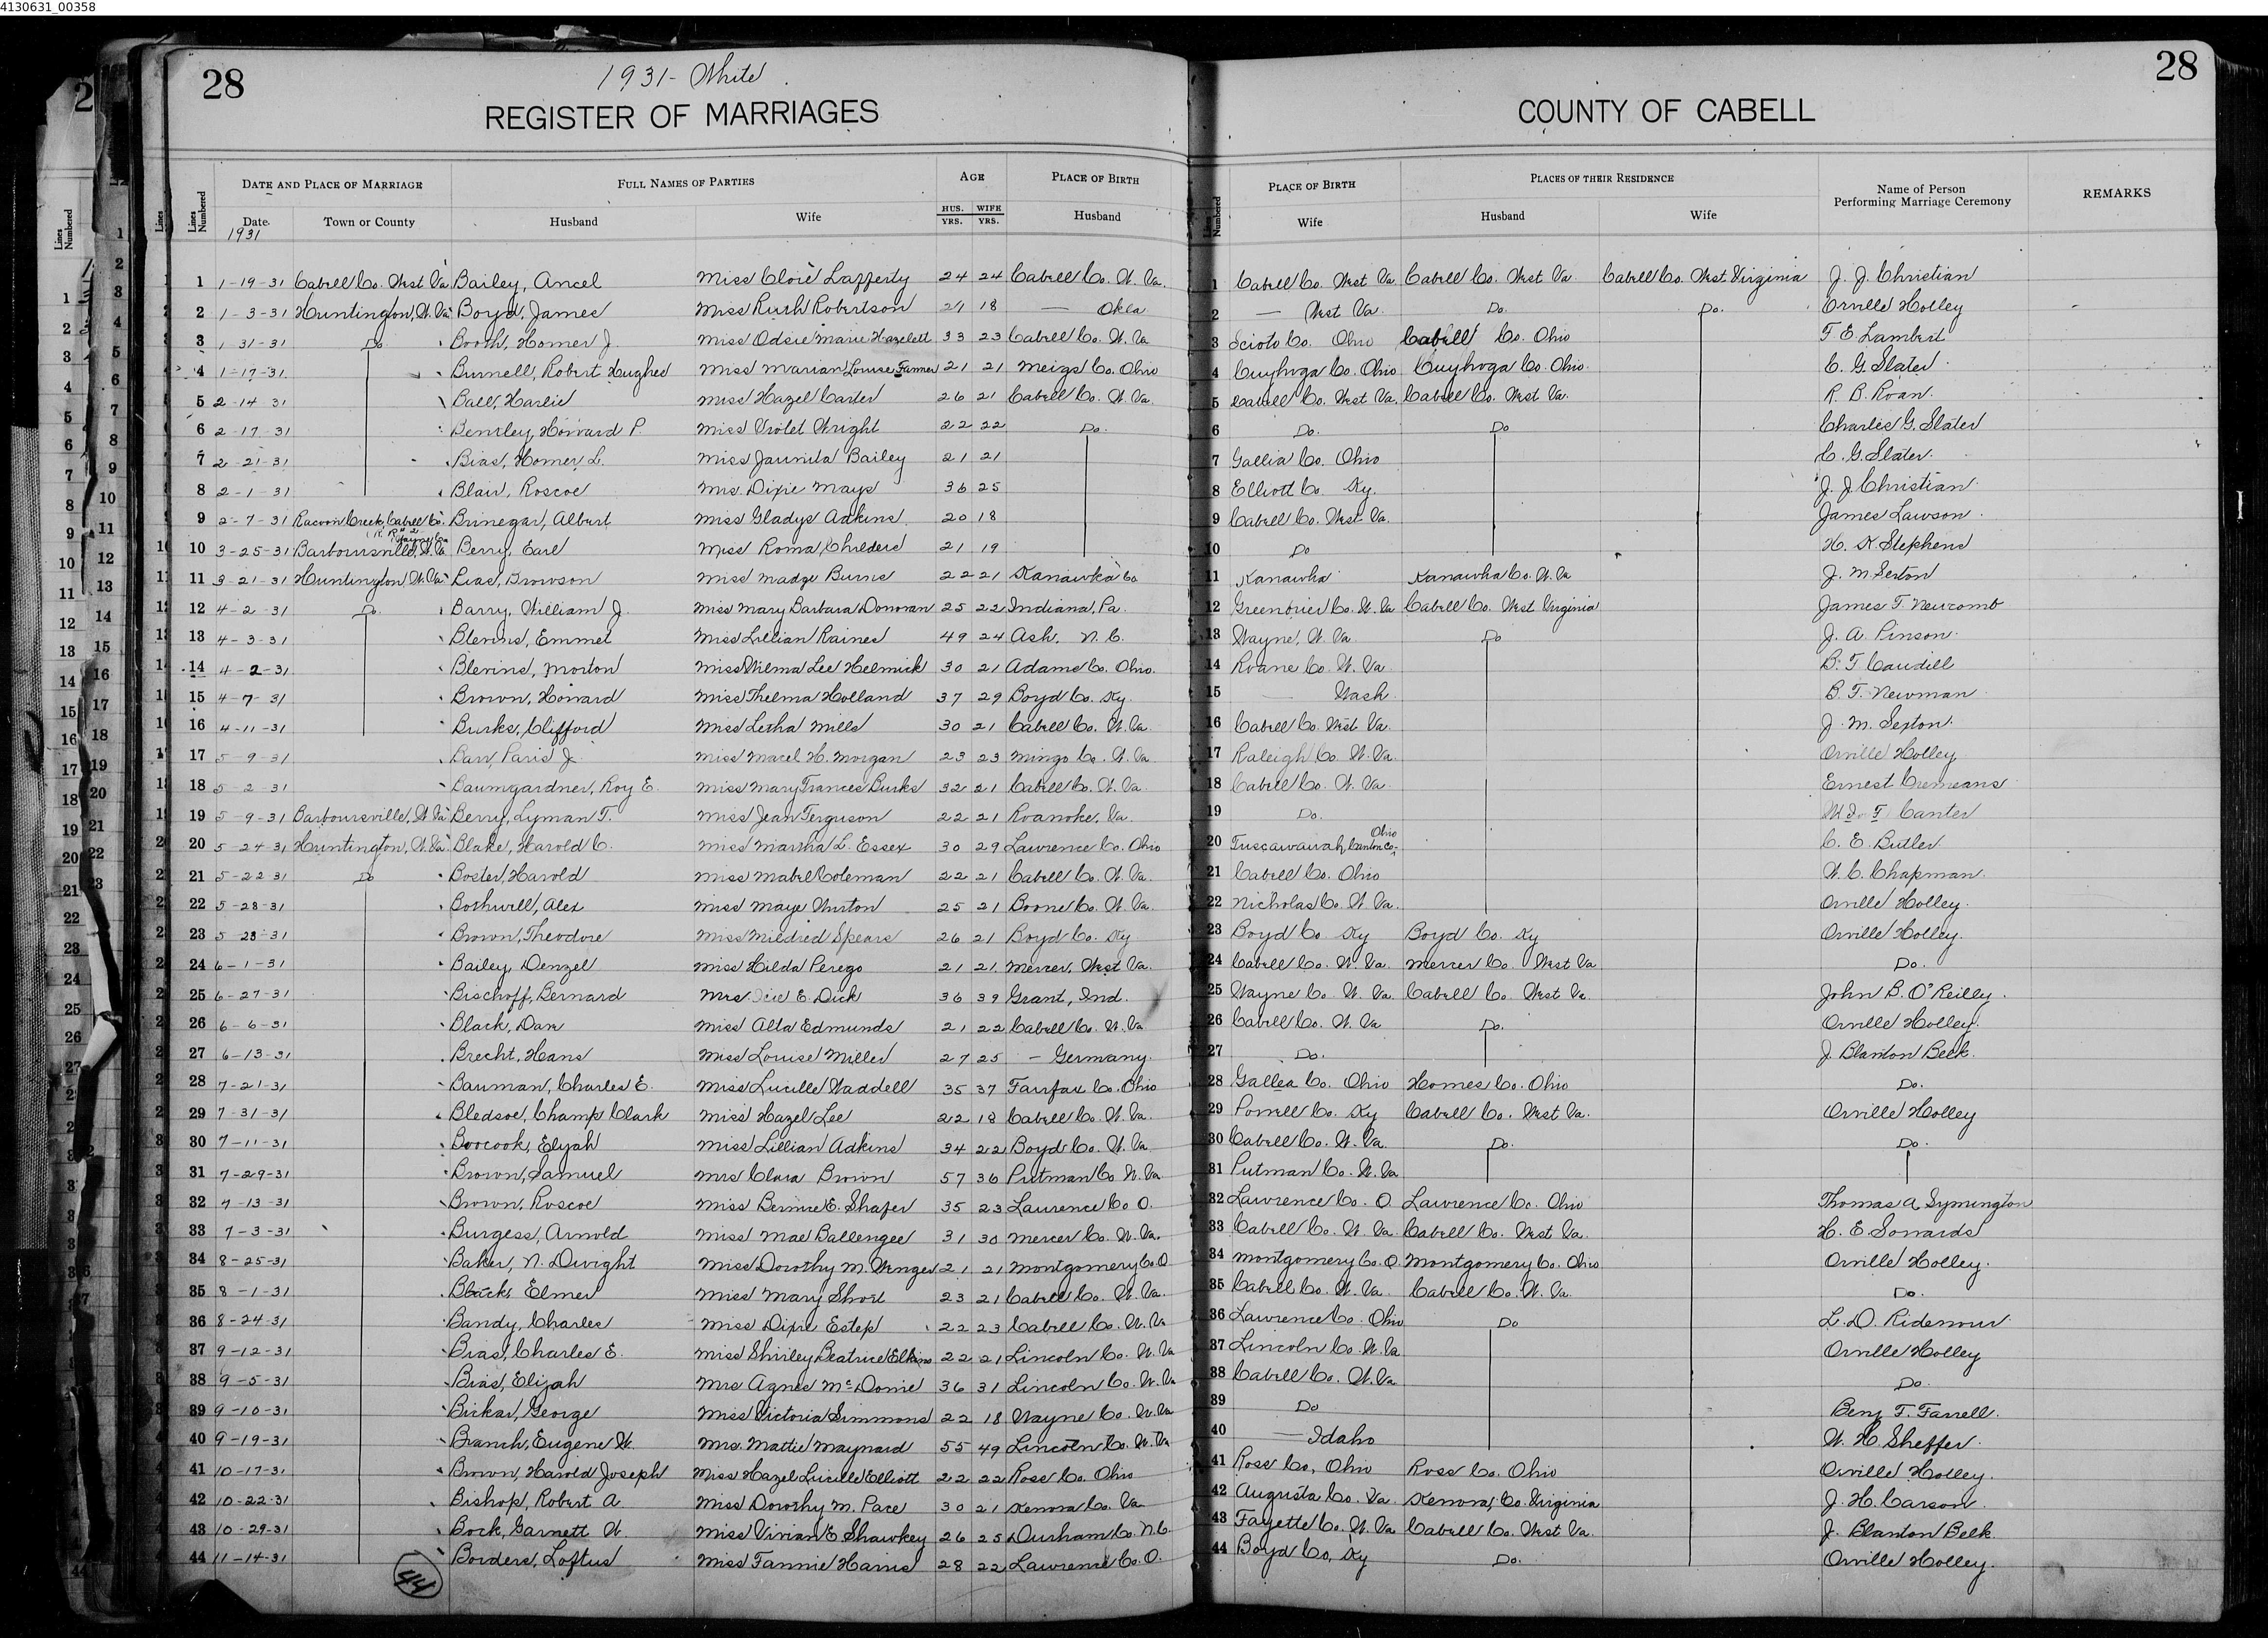 4130631_00358
28 1931- White 28
REGISTER OF MARRIAGES COUNTY OF CABELL
DATE AND PLACE OF MARRIAGE FULL NAMES OF PARTIES AGE PLACE OF BIRTH PLACE OF BIRTH PLACES OF THEIR RESIDENCE Name of Person Performing Marriage Ceremony REMARKS
Lines Numbered Date Town or County Husband Wife HUS. YRS. WIFE YRS. Husband Lines Numbered Wife Husband Wife
1931
1 1-19-31 Cabell Co. West Va Bailey, Ancel Miss Cloie Lafferty 24 24 Cabell Co. W. Va. 1 Cabell Co. West Va. Cabell Co. West Va Cabell Co. West Virginia J. J. Christian
2 1-3-31 Huntington, W. Va. Boyd, James Miss Ruth Robertson 21 18 — Okla 2 — West Va. Do. Do. Orville Holley
3 1-31-31 Do. Booth, Homer J. Miss Odsie Marie Hazelett 33 23 Cabell Co. W. Va 3 Scioto Co. Ohio Cabell Co. Ohio T. E. Lambert
4 1-17-31 Burnell, Robert Hughes Miss Marian Louise Farmer 21 21 Meigs Co. Ohio 4 Cuyhoga Co. Ohio Cuyhoga Co. Ohio. C. G. Slater
5 2-14 31 Ball, Harlie Miss Hazel Carter 26 21 Cabell Co. W. Va. 5 Cabell Co. West Va. Cabell Co. West Va. R. B. Roan.
6 2-17-31 Bentley, Howard P. Miss Violet Wright 22 22 Do. 6 Do. Do Charles G. Slater
7 2-21-31 Bias, Homer L. Miss Jaunita Bailey 21 21 7 Gallia Co. Ohio C. G. Slater.
8 2-1-31 Blair, Roscoe Mrs. Dixie Mays 36 25 8 Elliott Co. Ky. J. J. Christian
9 2-7-31 Racoon Creek, Cabell Co. Brinegar, Albert Miss Gladys Adkins 20 18 9 Cabell Co. West Va. James Lawson
10 3-25-31 Barboursville, W. Va Berry, Earl Miss Roma Childers 21 19 10 Do H. K. Stephens
11 3-21-31 Huntington, W. Va. Bias, Drowson Miss Madge Burns 22 21 Kanawha Co 11 Kanawha Kanawha Co. W. Va J. M. Sexton
12 4-2-31 Do. Barry, William J. Miss Mary Barbara Donovan 25 22 Indiana, Pa. 12 Greenbrier Co. W. Va Cabell Co. West Virginia James T. Newcomb
13 4-3-31 Blevins, Emmet Miss Lillian Raines 49 24 Ash, N. C. 13 Wayne, W. Va. Do J. A. Pinson.
14 4-2-31 Blevins, Morton Miss Wilma Lee Helmick 30 21 Adams Co. Ohio. 14 Roane Co. W. Va. B. T. Caudill
15 4-7-31 Brown, Howard Miss Thelma Holland 37 29 Boyd Co. Ky. 15 — Wash. B. T. Newman
16 4-11-31 Burks, Clifford Miss Letha Mills 30 21 Cabell Co. W. Va. 16 Cabell Co. West Va. J. M. Sexton.
17 5 9-31 Barr, Paris J. Miss Macel H. Morgan 23 23 Mingo Co. W. Va. 17 Raleigh Co. W. Va. Orville Holley
18 5-2-31 Baumgardner, Roy E. Miss Mary Frances Burks 32 21 Cabell Co. W. Va. 18 Cabell Co. W. Va. Ernest Cremeans
19 5-9-31 Barboursville, W. Va. Berry, Lyman T. Miss Jean Ferguson 22 21 Roanoke, Va. 19 Do. Canter
20 5-24 31 Huntington, W. Va. Blake, Harold C. Miss Martha L. Essex 30 29 Lawrence Co. Ohio 20 Tuscawauah, Canton Co. Ohio C. E. Butler
21 5-22 31 Do Boster, Harold Miss Mabel Coleman 22 21 Cabell Co. W. Va. 21 Cabell Co. Ohio W. C. Chapman
22 5-28-31 Bothwell, Alex Miss Maye Wiston 25 21 Boone Co. W. Va. 22 Nicholas Co. W. Va. Orville Holley.
23 5-28-31 Brown, Theodore Miss Mildred Spears 26 21 Boyd Co. Ky 23 Boyd Co. Ky Boyd Co. Ky Orville Holley.
24 6-1-31 Bailey, Denzel Miss Hilda Perego 21 21 Mercer, West Va. 24 Cabell Co. W. Va. Mercer Co. West Va Do.
25 6-27-31 Bischoff, Bernard Mrs E. Dick 36 39 Grant, Ind. 25 Wayne Co. W. Va. Cabell Co. West Va John B. O'Reilly.
26 6-6-31 Black, Dan Miss Alta Edmunds 21 22 Cabell Co. W. Va 26 Cabell Co. W. Va Do. Orville Holley.
27 6-13-31 Brecht, Hans Miss Louise Miller 27 25 — Germany. 27 Do. J. Blanton Belk.
28 7-21-31 Bauman, Charles E. Miss Lucille Waddell 35 37 Fairfax Co. Ohio 28 Gallea Co. Ohio Homes Co. Ohio Do.
29 7-31-31 Bledsoe, Champ Clark Miss Hazel Lee 22 18 Cabell Co. W. Va. 29 Powell Co. Ky Cabell Co. West Va. Orville Holley
30 7-11-31 Boocook, Elijah Miss Lillian Adkins 34 22 Boyd Co. W. Va. 30 Cabell Co. W. Va. Do. Do.
31 7-29-31 Brown, Samuel Mrs Clara Brown 57 36 Putman Co. W. Va. 31 Putman Co. W. Va
32 7-13-31 Brown, Roscoe Miss Bernice E. Shafer 35 23 Lawrence Co O. 32 Lawrence Co. O. Lawrence Co. Ohio Thomas A. Symington
33 7-3-31 Burgess, Arnold Miss Mae Ballengee 31 30 Mercer Co. W. Va. 33 Cabell Co. W. Va Cabell Co. West Va. H. E. Sowards
34 8-25-31 Baker, N. Dwight Miss Dorothy M. Wenger 21 21 Montgomery Co. O 34 Montgomery Co. O. Montgomery Co. Ohio Orville Holley.
35 8-1-31 Black, Elmer Miss Mary Short 23 21 Cabell Co. W. Va. 35 Cabell Co. W. Va Cabell Co. W. Va. Do.
36 8-24-31 Bandy, Charles Miss Dixie Estep 22 23 Cabell Co. W. Va 36 Lawrence Co. Ohio Do L. D. Ridenour
37 9-12-31 Bias, Charles E. Miss Shirley Beatrice Elkins 22 21 Lincoln Co. W. Va 37 Lincoln Co. W. Va Orville Holley
38 9-5-31 Bias, Elijah Mrs Agnes McDonie 36 31 Lincoln Co. W. Va 38 Cabell Co. W. Va Do.
39 9-10-31 Bickar, George Miss Victoria Simmons 22 18 Wayne Co. W. Va 39 Do Benj T. Farrell.
40 9-19-31 Branch, Eugene W. Mrs. Mattie Maynard 55 49 Lincoln Co. W. Va 40 — Idaho W. H. Sheffer.
41 10-17-31 Brown, Harold Joseph Miss Hazel Lucille Elliott 22 22 Ross Co. Ohio 41 Ross Co, Ohio Ross Co. Ohio Orville Holley.
42 10-22-31 Bishop, Robert A Miss Dorothy M. Pace 30 21 Kenova Co. Va 42 Augusta Co. Va Kenova, Co. Virginia J. H. Carson.
43 10-29-31 Bock, Garnett W. Miss Vivian E Shawkey 26 25 Durham Co. N. C. 43 Fayette Co. W. Va Cabell Co. West Va. J. Blanton Belk
44 11-14-31 Borders, Loftus Miss Fannie Harris 28 22 Lawrence Co. O. 44 Boyd Co, Ky Do. Orville Holley.
44